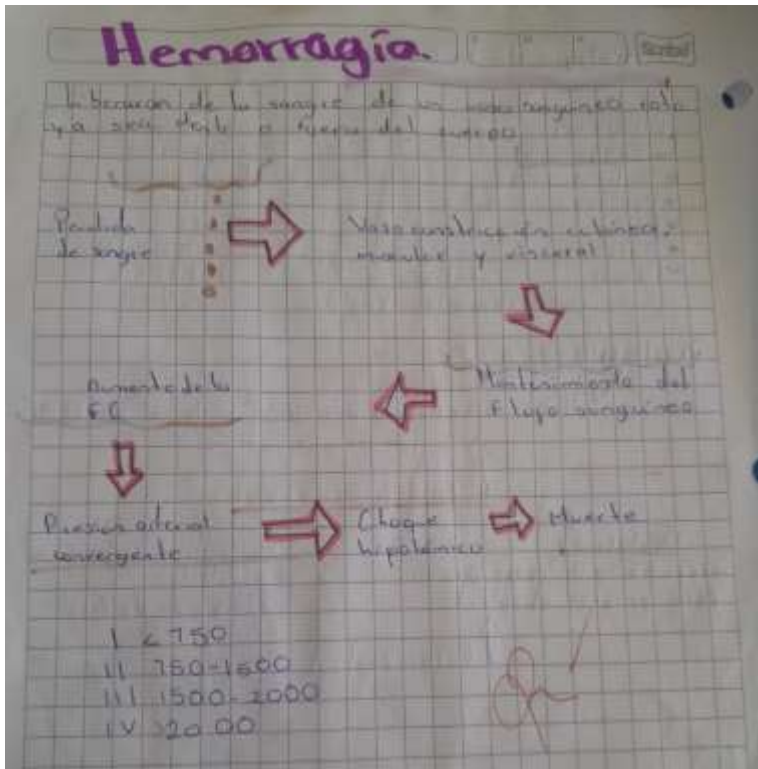 Hemorragía.
Liberación de la sangre de un vaso sanguíneo roto
ya sea o fuera del cuerpo
Perdida
de sangre
Vaso constricción cutánea,
muscular y visceral
Mantenimiento del
Flujo sanguíneo
Aumento de la
F.C
Presion arterial
convergente
Choque
Muerte
I < 750
II 750-1500
III 1500-2000
IV >2000